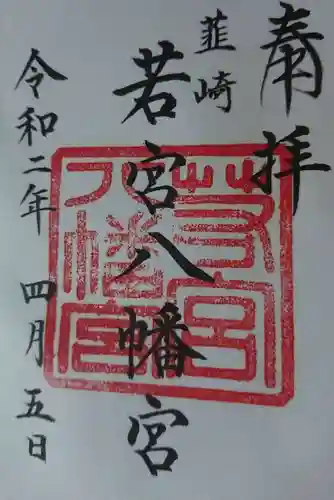 奉拝
韮崎
若宮八幡宮
令和二年 四月五日
若宮
八幡宮